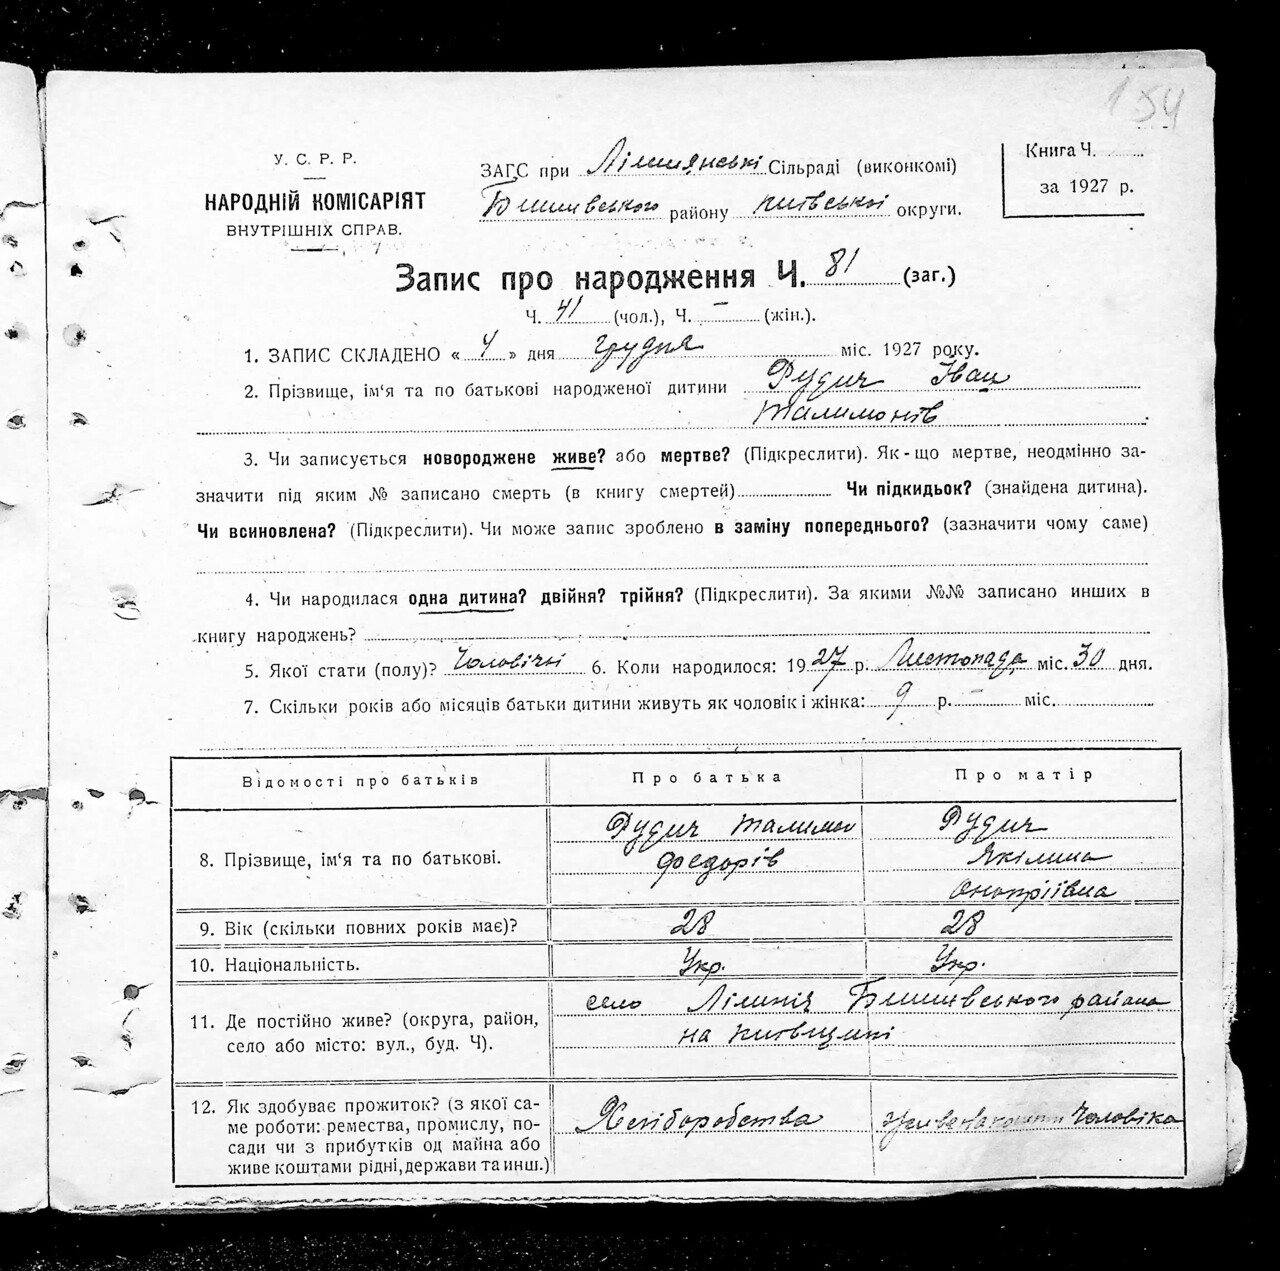 154
У. С. Р. Р.
НАРОДНІЙ КОМІСАРІЯТ
ВНУТРІШНІХ СПРАВ.
ЗАГС при Лишнянські Сільраді (виконкомі)
Бишівського району Київської округи.
Книга Ч.
за 1927 р.
Запис про народження Ч. 81 (заг.)
Ч. 41 (чол.), Ч. – (жін.).
1. ЗАПИС СКЛАДЕНО « 4 » дня Грудня міс. 1927 року.
2. Прізвище, ім‘я та по батькові народженої дитини Рудич Іван
Талимонів
3. Чи записується новороджене живе? або мертве? (Підкреслити). Як-що мертве, неодмінно за-
значити під яким № записано смерть (в книгу смертей) Чи підкидьок? (знайдена дитина).
Чи всиновлена? (Підкреслити). Чи може запис зроблено в заміну попереднього? (зазначити чому саме)
4. Чи народилася одна дитина? двійня? трійня? (Підкреслити). За якими №№ записано инших в
книгу народжень?
5. Якої стати (полу)? Чоловічої 6. Коли народилося: 1927 р. Листопада міс. 30 дня.
7. Скільки років або місяців батьки дитини живуть як чоловік і жінка: 9 р. – міс.
Відомості про батьків Про батька Про матір
8. Прізвище, ім‘я та по батькові. Рудич Талимон Федорів Рудич Якілина Онопріївна
9. Вік (скільки повних років має)? 28 28
10. Національність. Укр. Укр.
11. Де постійно живе? (округа, район,
село або місто: вул., буд. Ч).
село Лишня Бишівського района
на Київщині
12. Як здобуває прожиток? (з якої са-
ме роботи: ремества, промислу, по-
сади чи з прибутків од майна або
живе коштами рідні, держави та инш.)
Хліборобства
Чоловіка